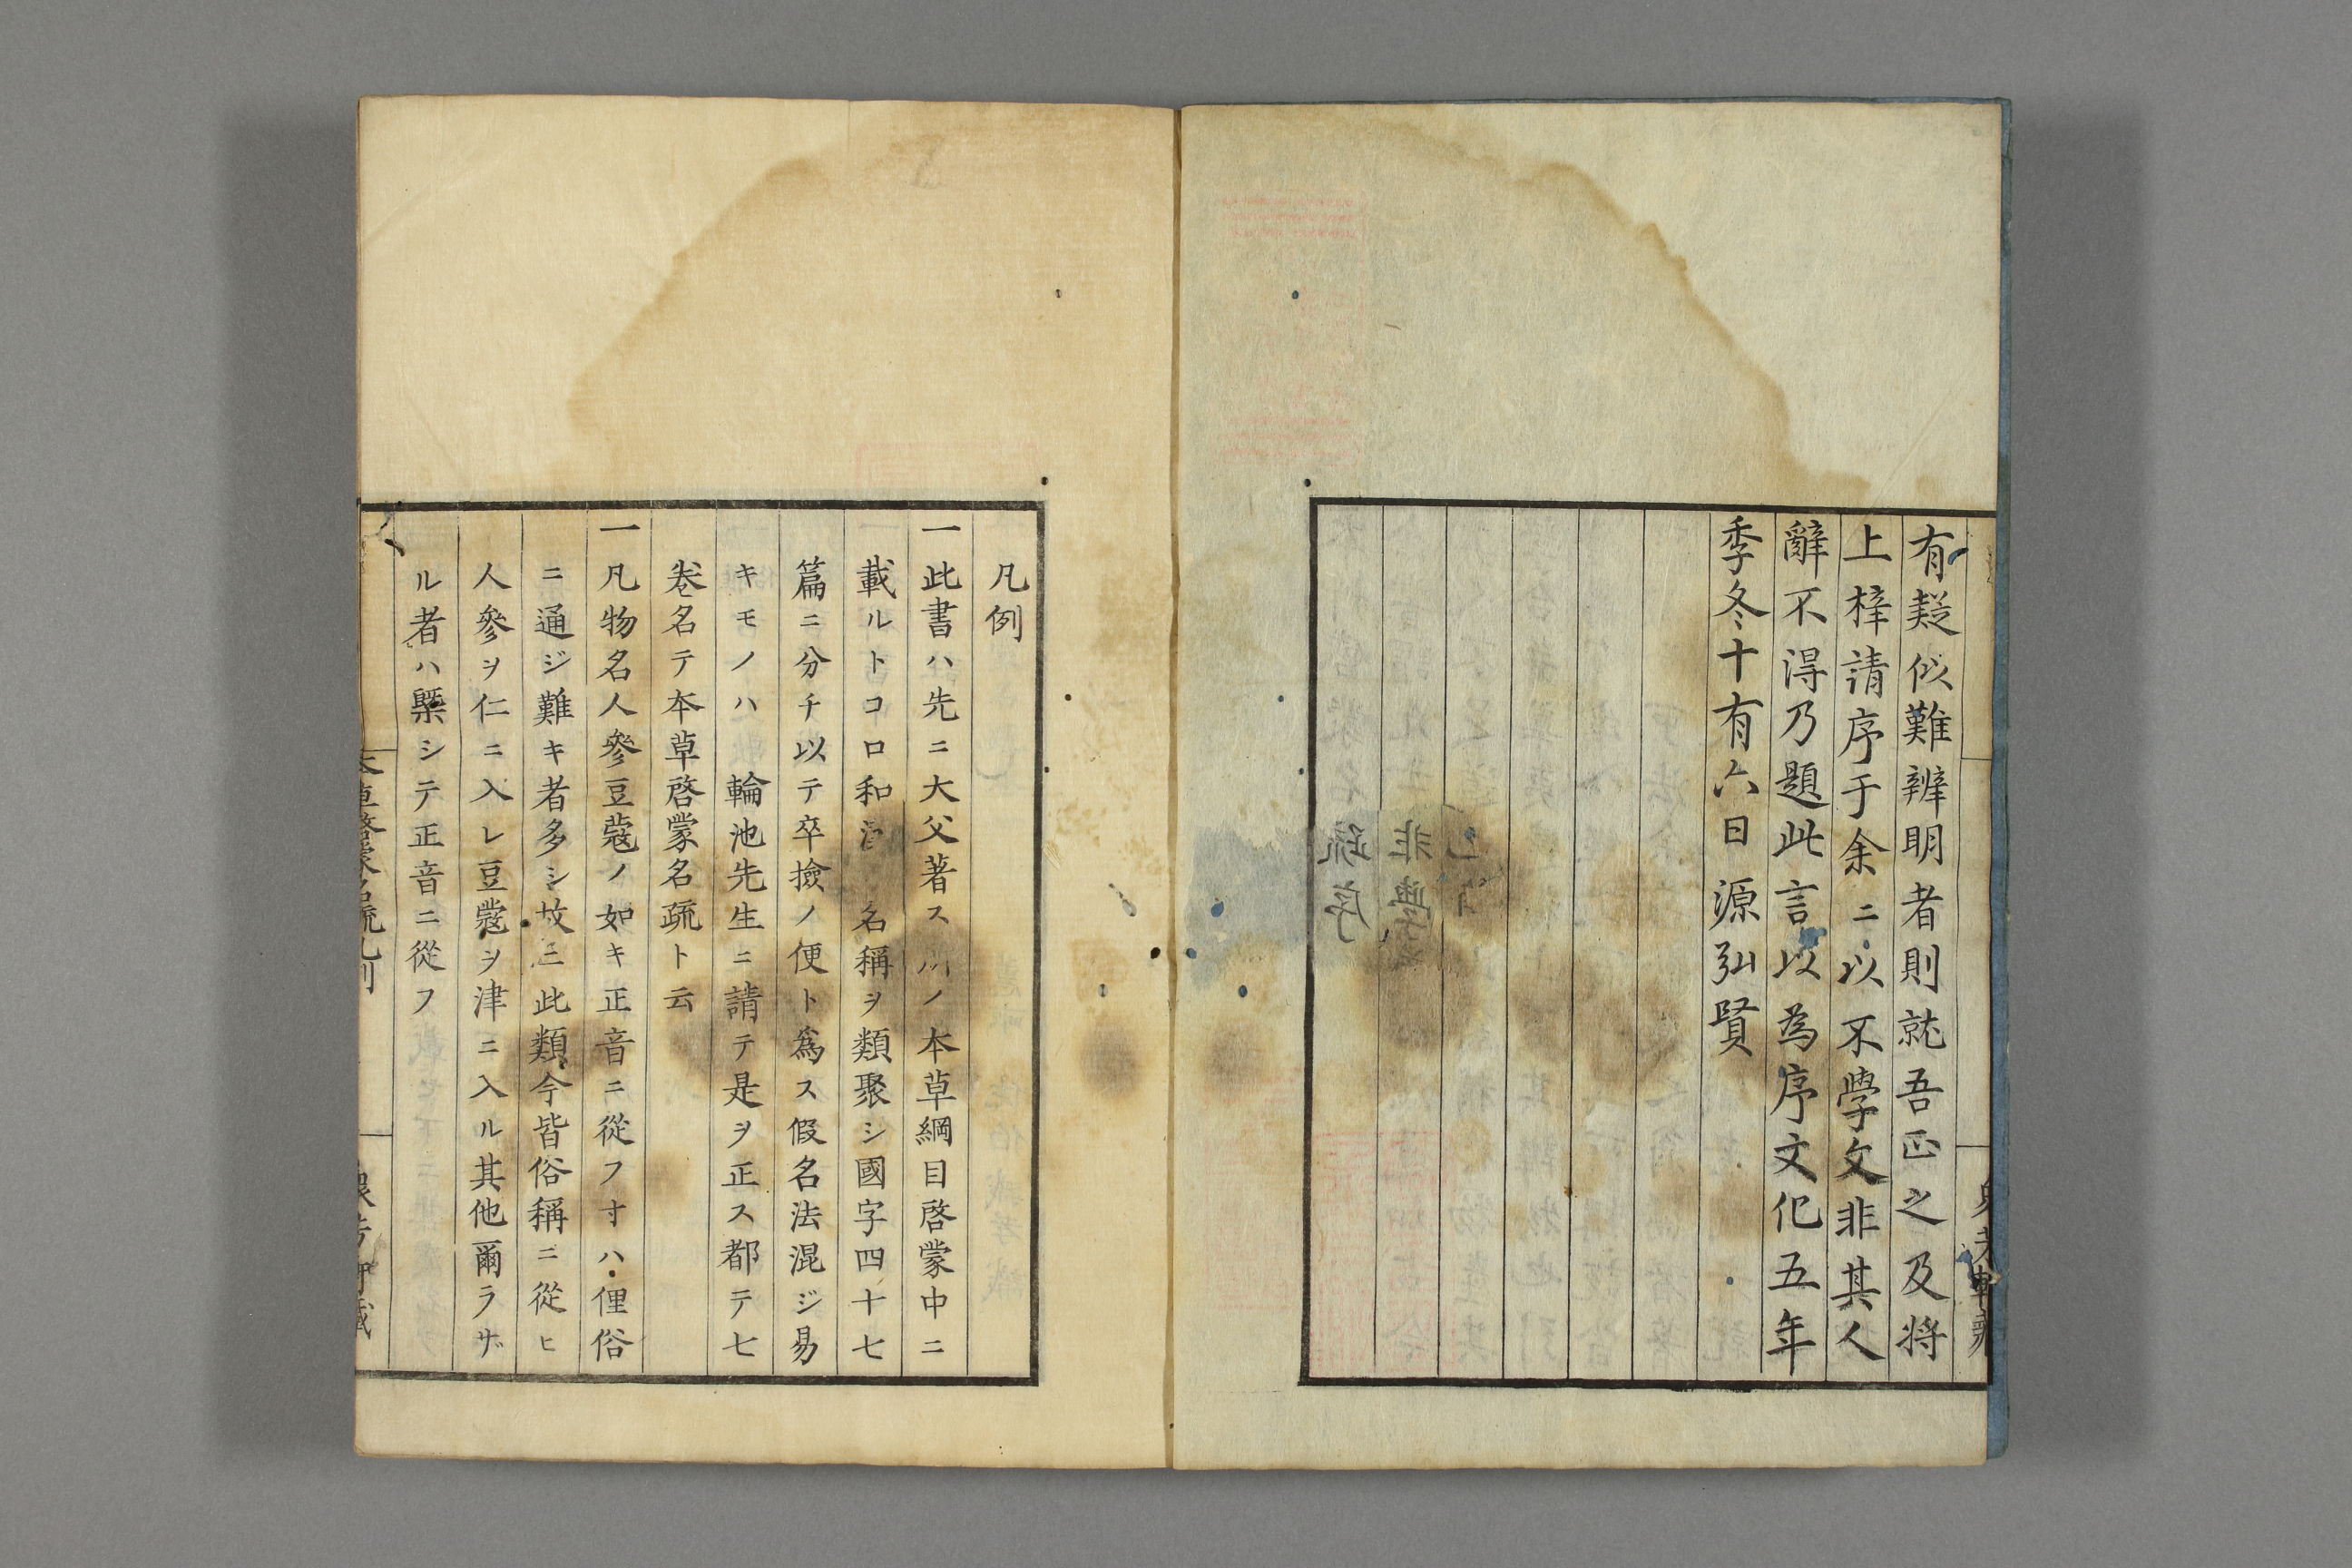 有疑似難辨明者則就吾正之及將
上梓請序于余二以不學文非其人
辭不淂乃題此言以為序文化五年
季冬十有六日 源弘賢
凡例
一此書ハ先ニ大父著ス ノ本草綱目啓蒙中ニ
載ルトコロ和 名稱ヲ類聚シ國字四十七
篇ニ分チ以テ卒撿ノ便ト爲ス假名法混ジ易
キモノハ 輪池先生ニ請テ是ヲ正ス都テ七
卷名テ本草啓蒙名疏ト云
一凡物名人參豆蔻ノ如キ正音ニ從フ寸ハ俚俗
ニ通ジ難キ者多シ故ニ此類今皆俗稱ニ從ヒ
人參ヲ仁ニ入レ豆蔻ヲ津ニ入ル其他爾ラザ
ル者ハ槩シテ正音ニ從フ
本草啓蒙名疏凡例